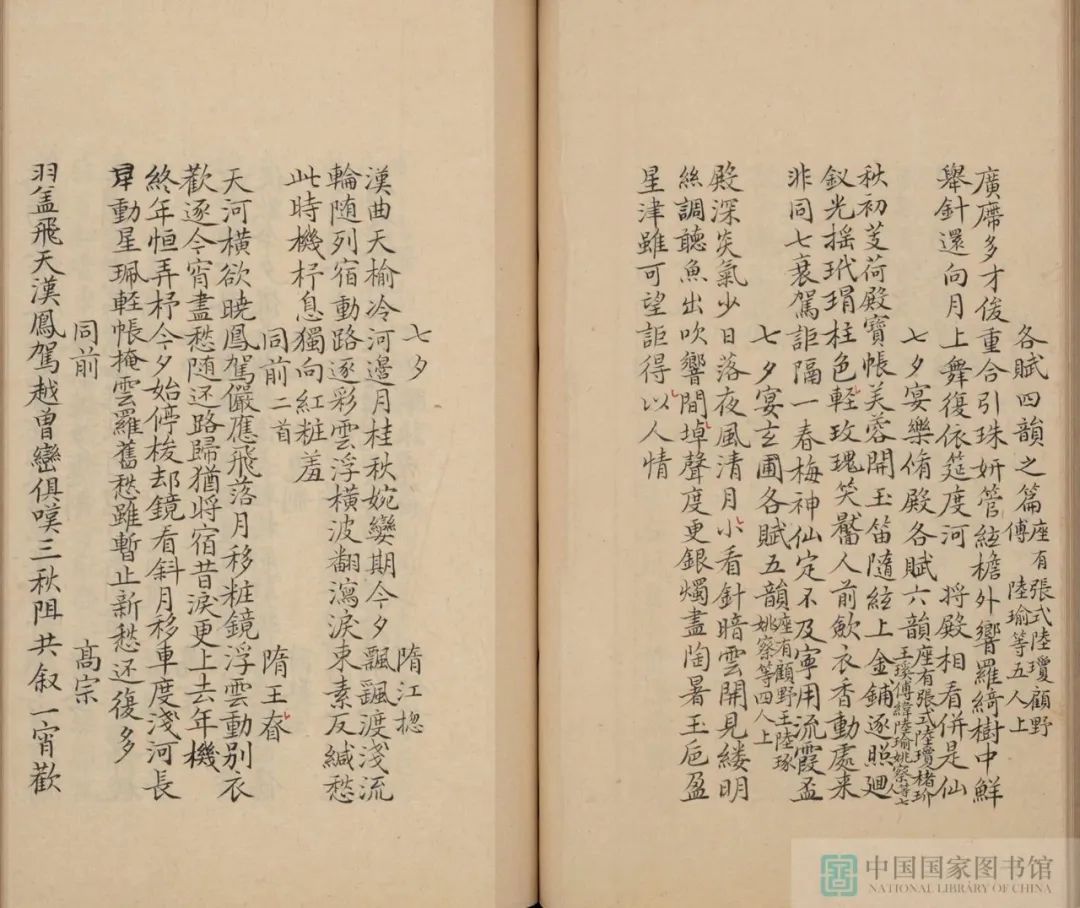 各賦四韻之篇座有張式陸瓊顧野
傅　陸瑜等五人上
廣席多才俊重合引珠妍管絃檐外響羅綺樹中鮮
舉針還向月上舞復依筵度河　將殿相看併是仙
七夕宴樂脩殿各賦六韻座有張式陸瓊褚玠
王瑳傅緯陸瑜姚察等七人上
秋初芰荷殿寶帳芙蓉開玉笛隨絃上金鋪逐照廻
釵光搖玳瑁柱色輕玫瑰笑靨人前歛衣香動處来
非同七襄駕詎隔一春梅神仙定不及寧用流霞盃
七夕宴玄圃各賦五韻座有顧野王陸琢
姚察等四人上
殿深炎氣少日落夜風清月小看針暗雲開見縷明
絲調聽魚出吹響間埠聲度更銀燭盡陶暑玉巵盈
星津雖可望詎得以人情
七夕　隋江揔
漢曲天榆冷河邊月桂秋婉孌期今夕飄飄渡淺流
輪随列宿動路逐彩雲浮橫波翻瀉淚束素反緘愁
此時機杼息獨向紅粧羞
同前二首　隋王眘
天河橫欲曉鳳駕儼應飛落月移粧鏡浮雲動別衣
歡逐今宵盡愁随还路歸猶將宿昔淚更上去年機
終年恒弄杼今夕始停梭却鏡看斜月移車度淺河長
早動星珮軽帳掩雲羅舊愁雖暫止新愁还復多
同前　髙宗
羽盖飛天漢鳳駕越曾巒俱嘆三秋阻共叙一宵歡
中国国家图书馆
NATIONAL LIBRARY OF CHINA